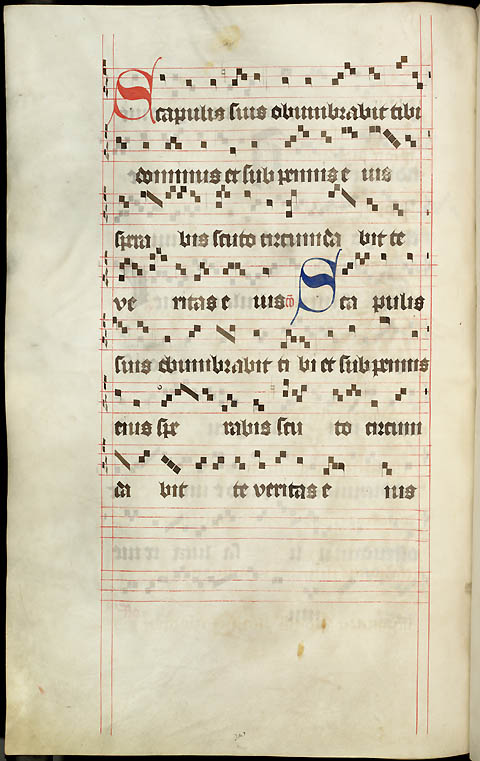 Scapulis suis obumbrabit tibi
dominus et sub pennis e ius
spera bis scuto circumda bit te
ve ritas e ius cō Sca pulis
suis obumbrabit ti bi et sub pennis
eius spe rabis scu to circum
da bit te veritas e ius